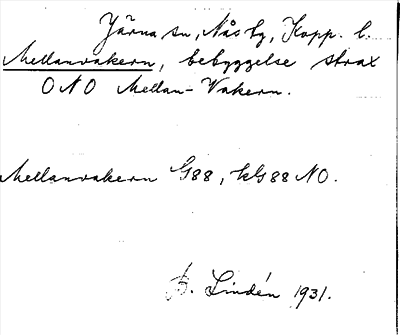 Järna sn, Nås hg, Kopp. l.
Mellanvakern, bebyggelse strax
ONO Mellan-Vakern.
Mellanvakern G88, kG88 NO.
B. Lindén 1931.